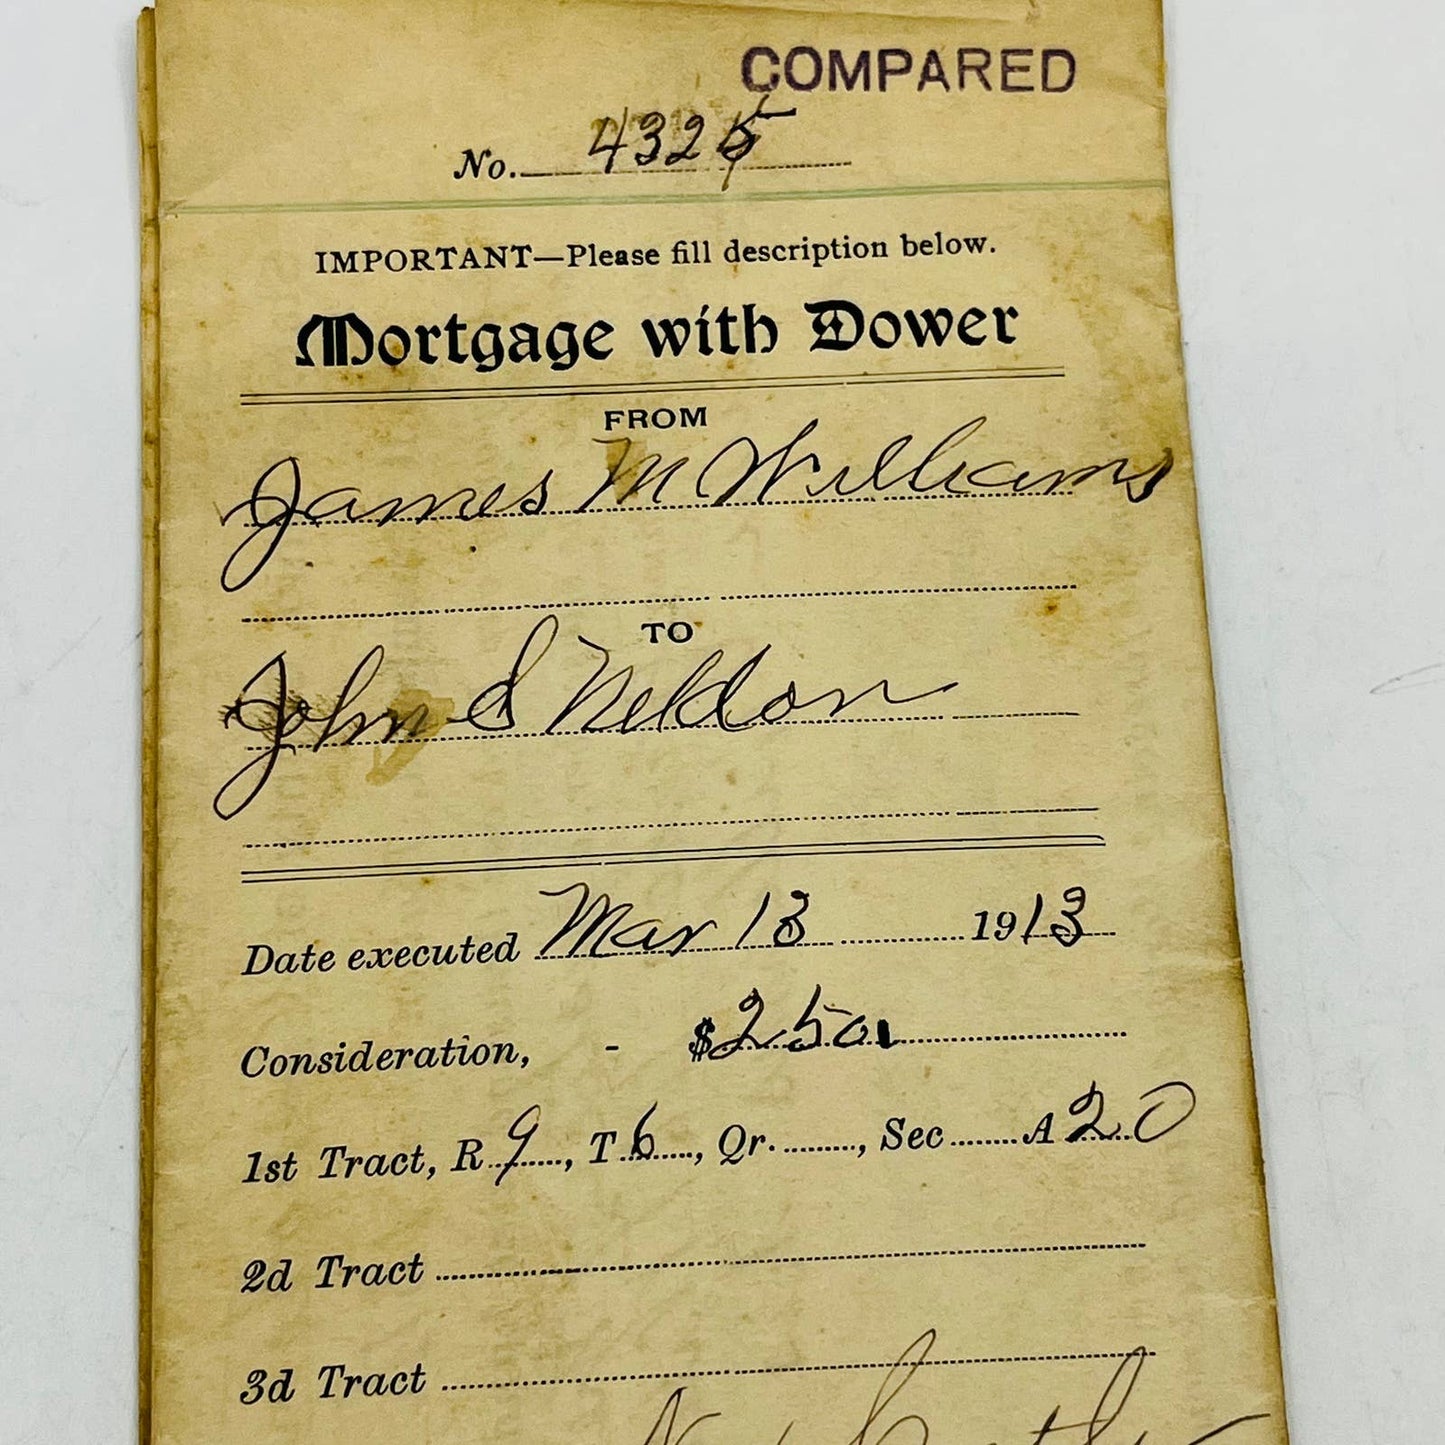 COMPARED
No. 4325
IMPORTANT—Please fill description below.
Mortgage with Dower
FROM
James M Williams
TO
John S Neldon
Date executed Mar 13 1913
Consideration, - $250
1st Tract, R 9, T 6, Qr. , Sec A 20
2d Tract
3d Tract